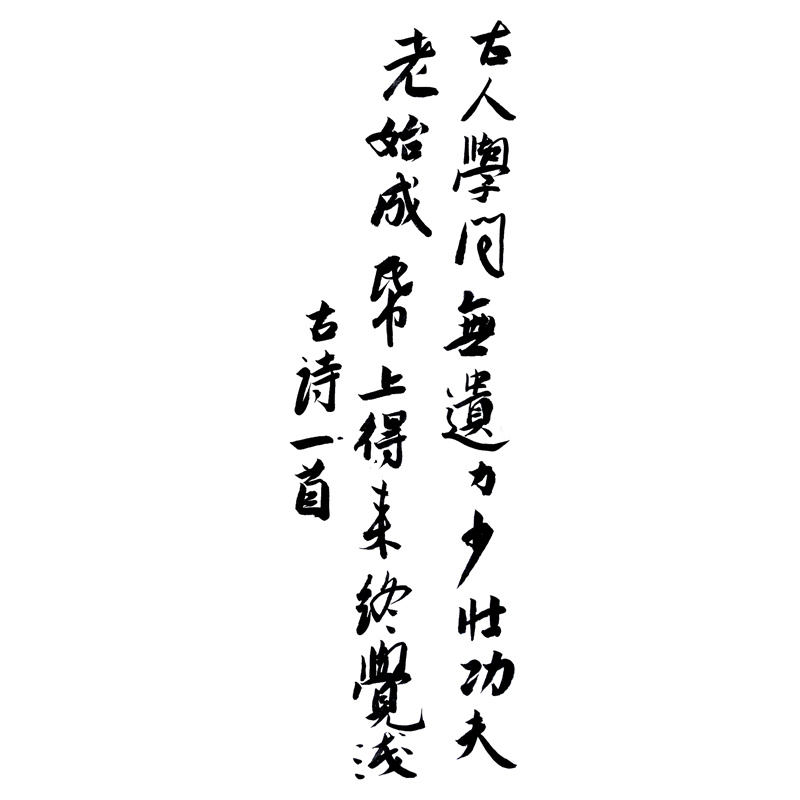 古人學問無遺力少壯功夫
老始成帋上得来終覺淺
古詩一首